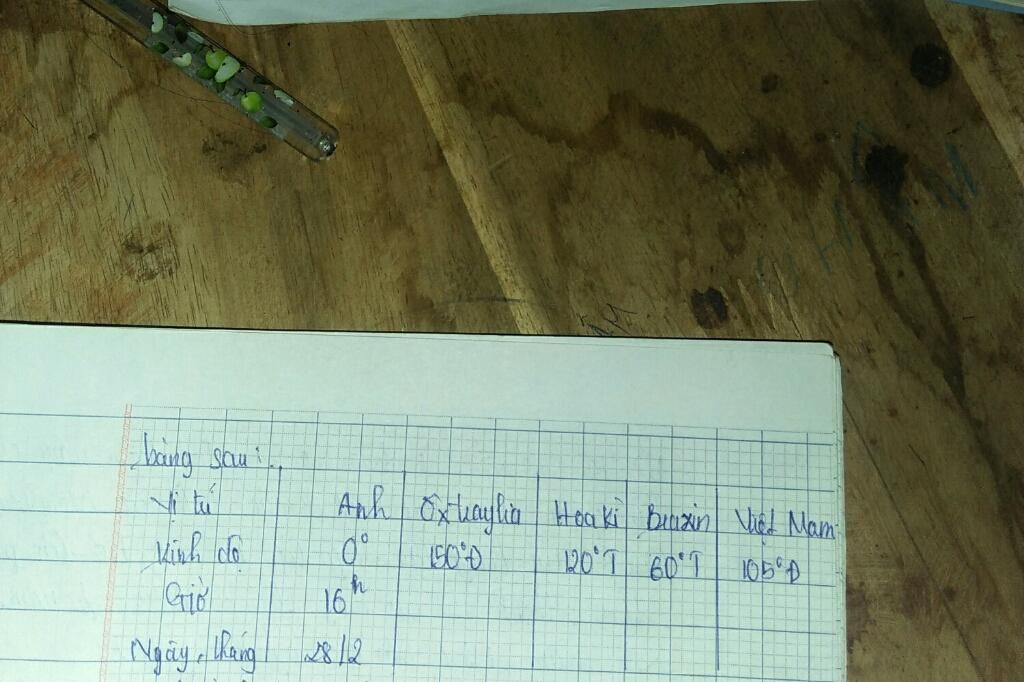 bảng sau:
Vị trí Anh Ôxtraylia Hoa Kì Braxin Việt Nam
Kinh độ 0° 150°Đ 120°T 60°T 105°Đ
Giờ 16h
Ngày, tháng 28/2